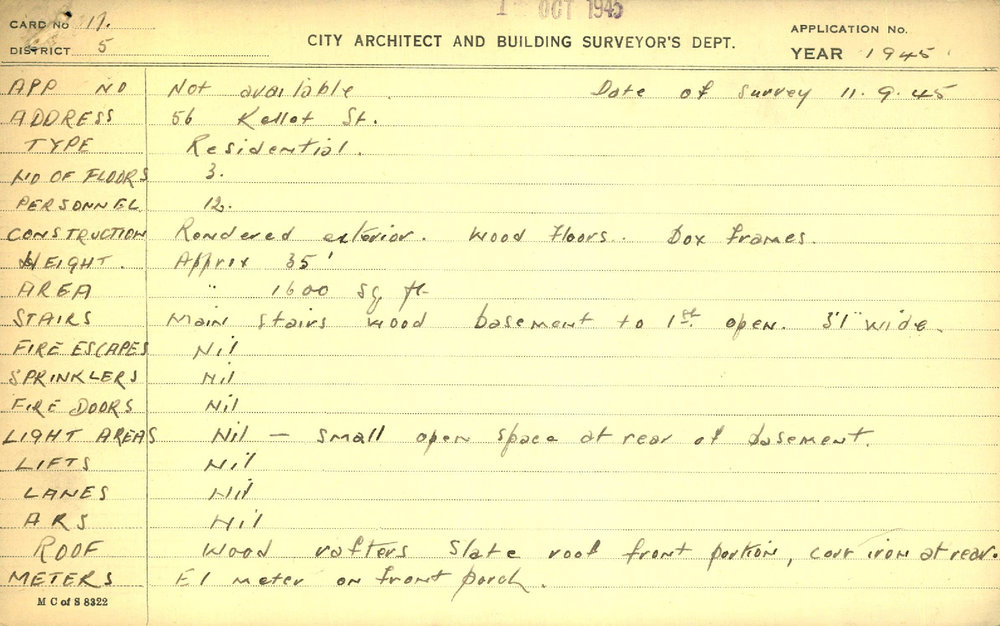 OCT 1945
CARD No 117.
DISTRICT 5
CITY ARCHITECT AND BUILDING SURVEYOR'S DEPT.
APPLICATION No.
YEAR 1945
APP NO Not available. Date of survey 11.9.45
ADDRESS 56 Kellet St.
TYPE Residential.
NO OF FLOORS 3.
PERSONNEL 12.
CONSTRUCTION Rendered exterior. Wood floors. Box frames.
HEIGHT. Approx 35'
AREA " 1600 sq ft.
STAIRS Main stairs wood basement to 1st. open. 3'1" wide.
FIRE ESCAPES Nil
SPRINKLERS Nil
FIRE DOORS Nil
LIGHT AREAS Nil — small open space at rear of basement.
LIFTS Nil
LANES Nil
ARS Nil
ROOF Wood rafters Slate roof front portion, corr iron at rear.
METERS El meter on front porch.
M C of S 8322